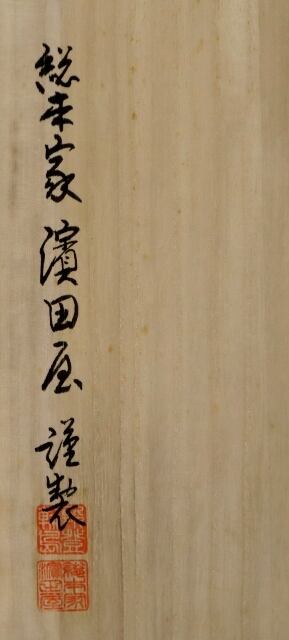 総本家 濱田屋 謹製